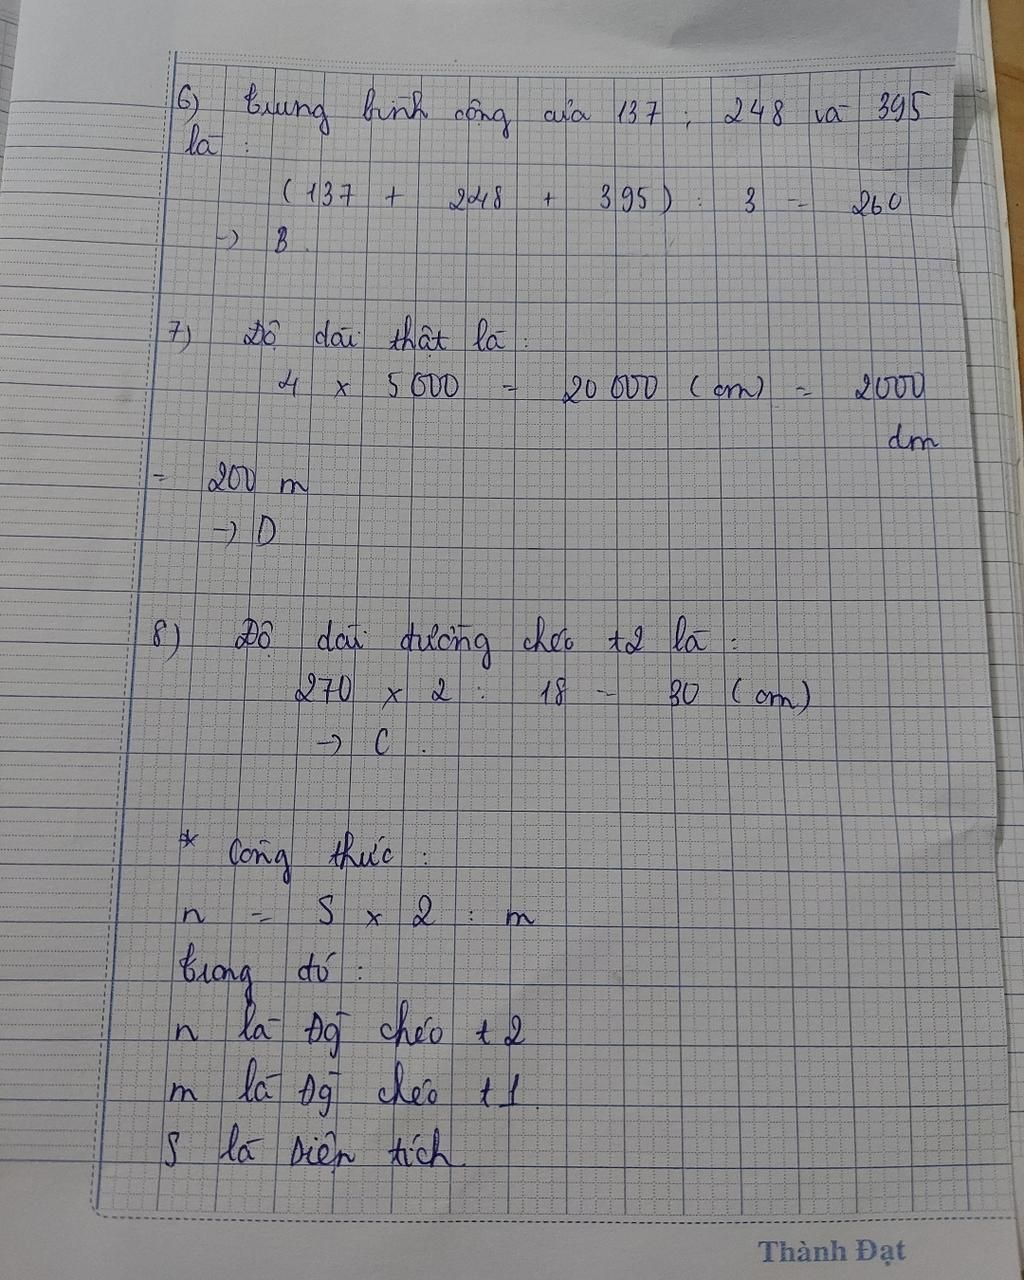 6) trung bình cộng của 137 ; 248 và 395
là :
( 137 + 248 + 395 ) : 3 = 260
→ B .
7) Độ dài thật là :
4 x 5000 = 20 000 ( cm ) = 2000
dm
= 200 m
→ D
8) Độ dài đường chéo t2 là :
270 x 2 : 18 = 30 ( cm )
→ C .
* Công thức :
n = S x 2 : m
trong đó :
n là Đg chéo t2
m là Đg chéo t1
S là Diện tích
Thành Đạt